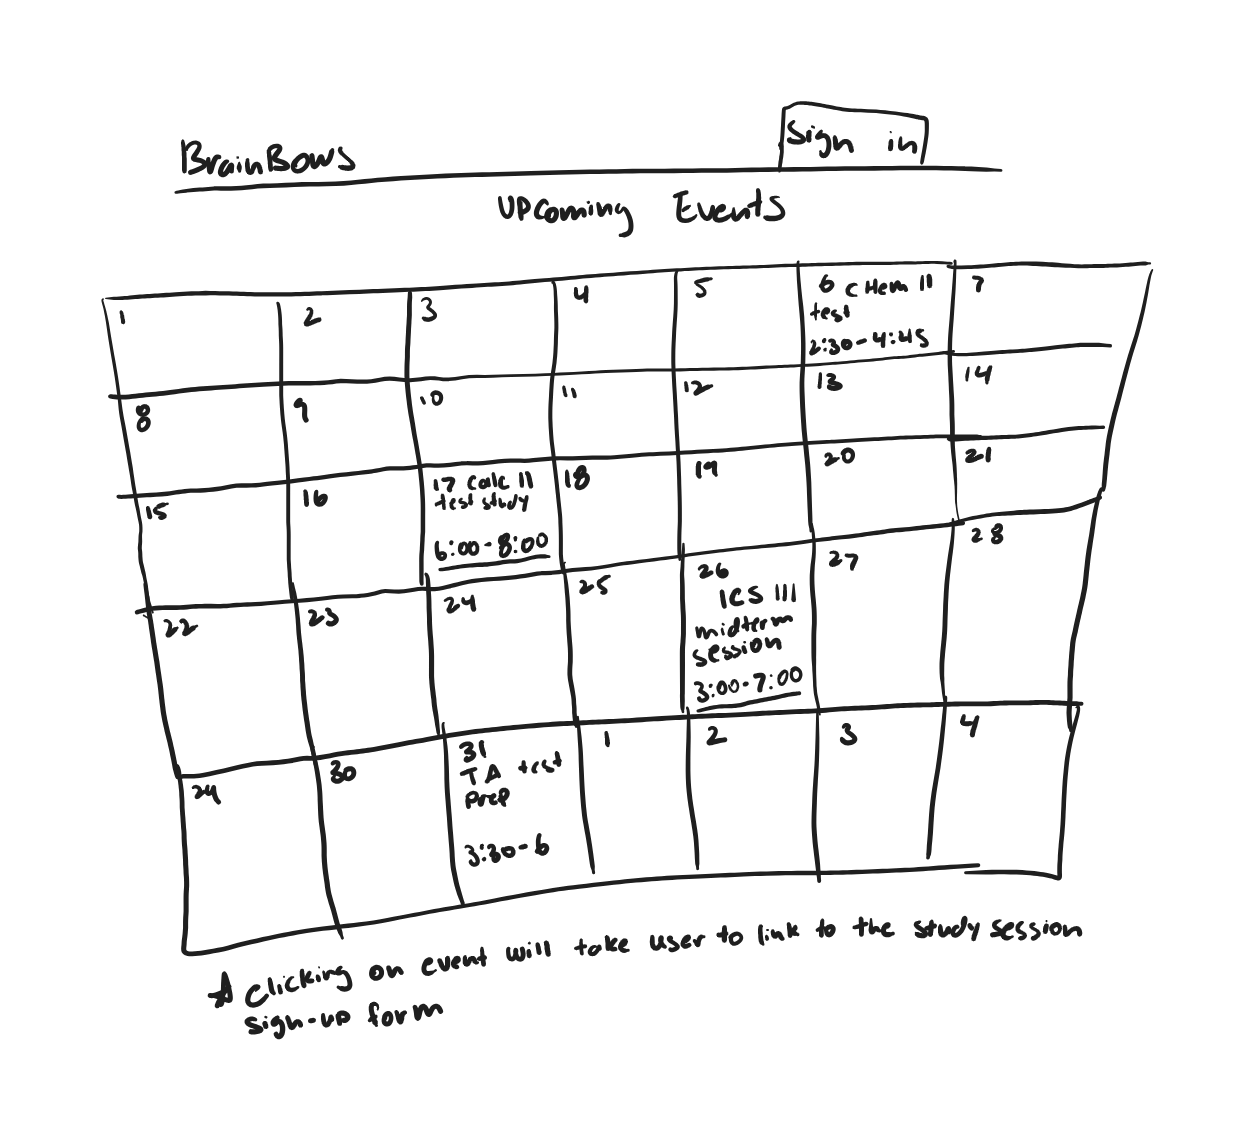 BrainBows
Sign in
Upcoming Events
1
2
3
4
5
6 CHem II
test
2:30-4:45
7
8
9
10
11
12
13
14
15
16
17 Calc II
test study
6:00-8:00
18
19
20
21
22
23
24
25
26
ICS III
midterm
session
3:00-7:00
27
28
29
30
31
TA test
Prep
3:30-6
1
2
3
4
☆ Clicking on event will take user to link to the study session
sign-up form